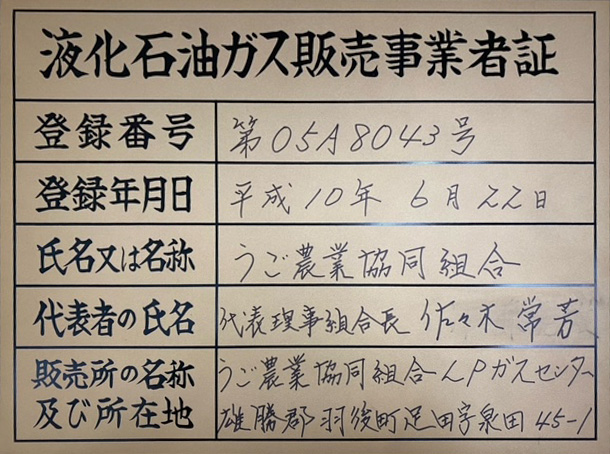 液化石油ガス販売事業者証
登録番号 第05A8043号
登録年月日 平成10年 6月22日
氏名又は名称 うご農業協同組合
代表者の氏名 代表理事組合長 佐々木 常芳
販売所の名称 うご農業協同組合LPガスセンター
及び所在地 雄勝郡羽後町足田字泉田45-1